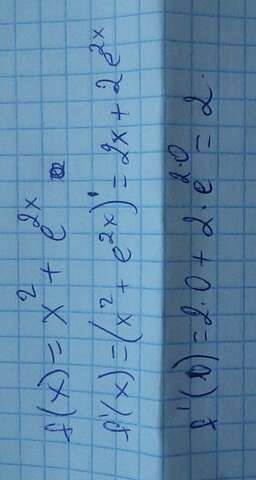 f(x) = x² + e^{2x}
f'(x) = (x² + e^{2x})' = 2x + 2e^{2x}
f'(0) = 2·0 + 2·e^{2·0} = 2.